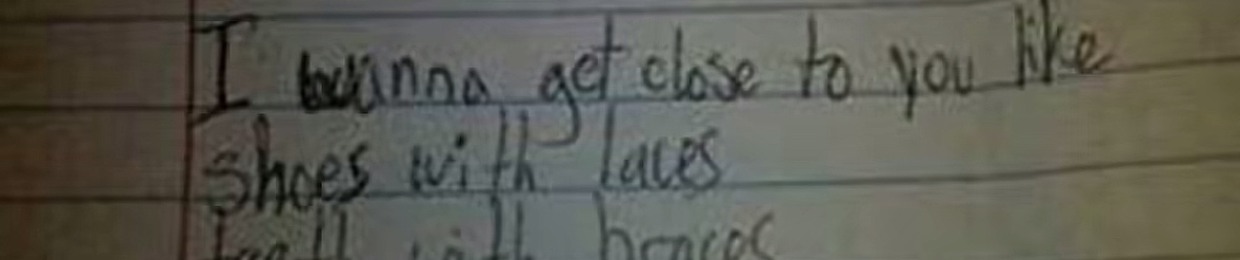 I wanna get close to you like
shoes with laces
teeth with braces